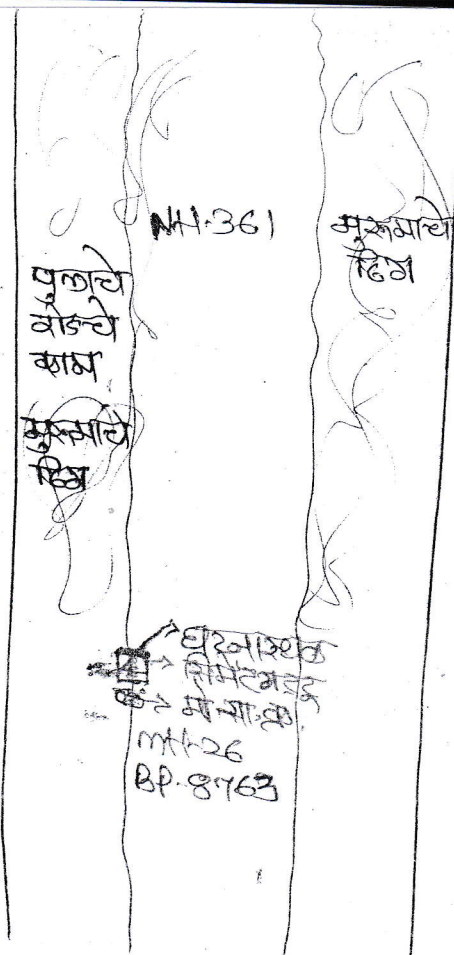 NH-361
मुरूमाचे
ढिग
पुलाचे
रोडचे
काम
मुरूमाचे
ढिग
घटनास्थळ
सिमेंटगट्टू
मो.सा.क्र
MH-26
BP-8763